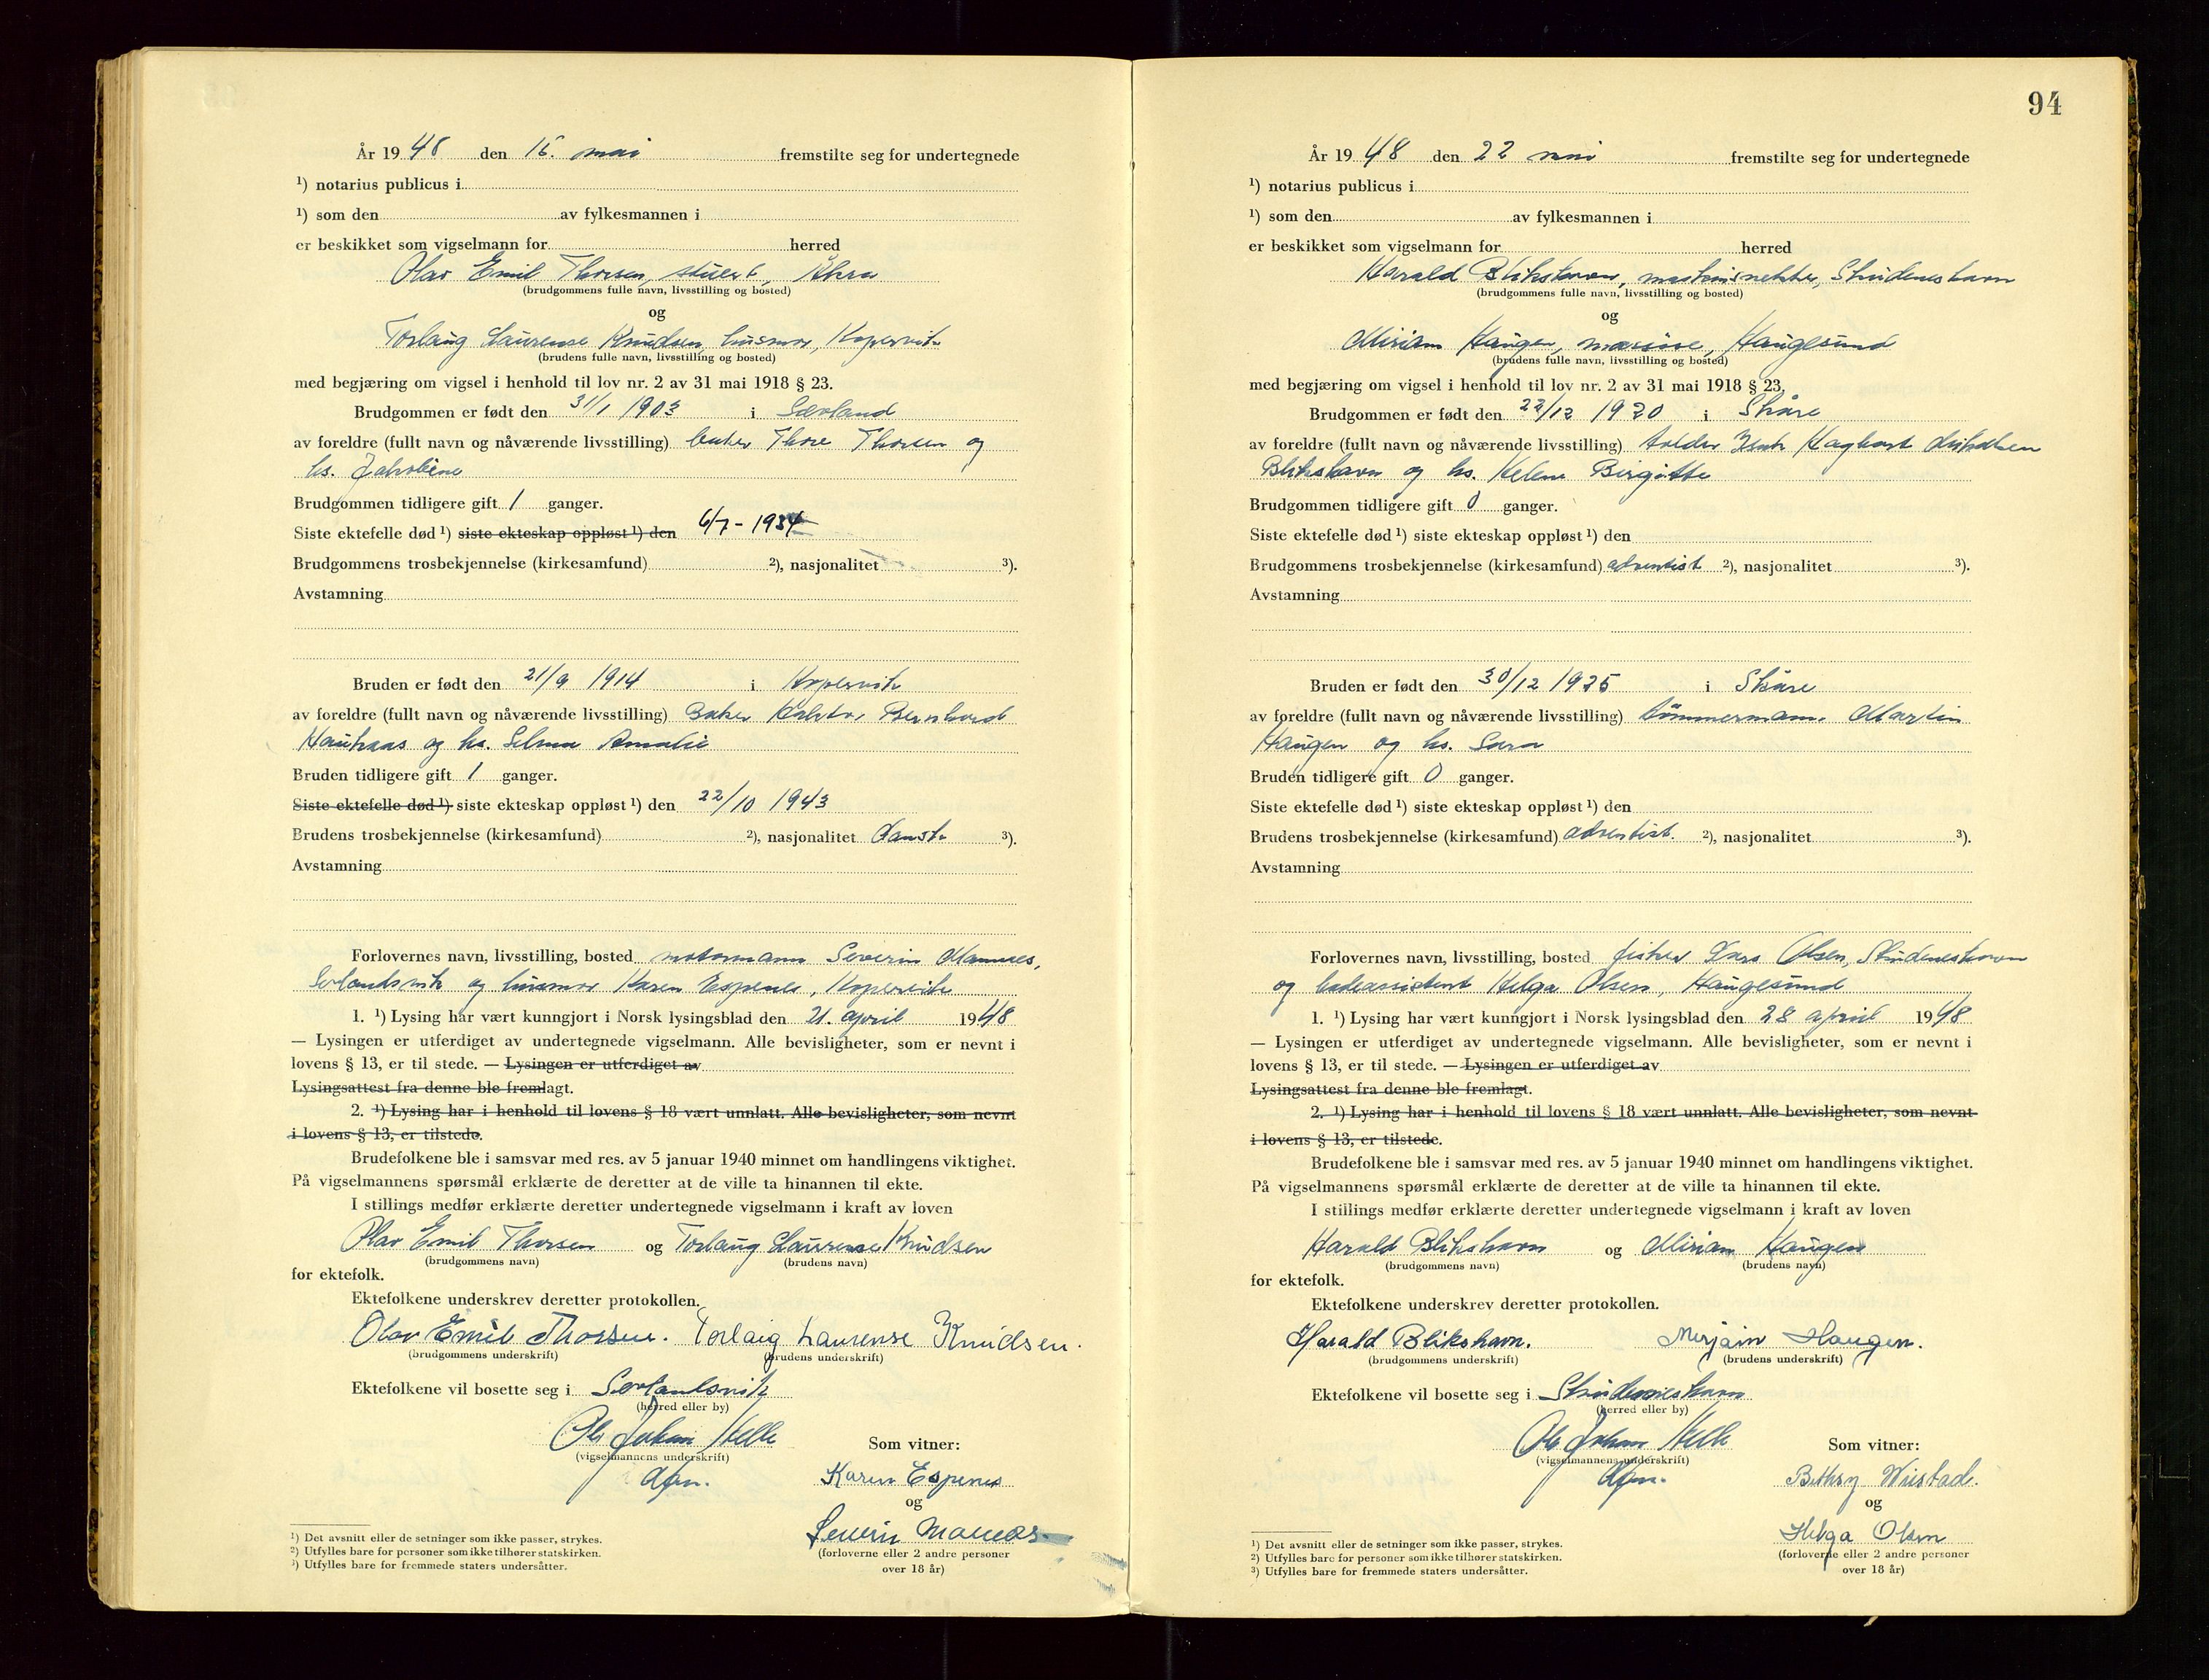 År 1948 den 15. mai fremstilte seg for undertegnede
¹) notarius publicus i
¹) som den av fylkesmannen i
er beskikket som vigselmann for herred
Olav Emil Thorsen, stuert, Åkra
(brudgommens fulle navn, livsstilling og bosted)
og
Torlaug Laurense Knudsen, husmor, Kopervik
(brudens fulle navn, livsstilling og bosted)
med begjæring om vigsel i henhold til lov nr. 2 av 31 mai 1918 § 23.
Brudgommen er født den 31/1 1903 i Sævland
av foreldre (fullt navn og nåværende livsstilling) Thore Thorsen og
hs. Jakobine
Brudgommen tidligere gift 1 ganger.
Siste ektefelle død ¹) siste ekteskap oppløst ¹) den 6/7 - 1934
Brudgommens trosbekjennelse (kirkesamfund) ²), nasjonalitet ³).
Avstamning
Bruden er født den 21/9 1914 i Kopervik
av foreldre (fullt navn og nåværende livsstilling) Baker Bernhard
og hs. Selma Amalie
Bruden tidligere gift 1 ganger.
Siste ektefelle død ¹) siste ekteskap oppløst ¹) den 22/10 1943
Brudens trosbekjennelse (kirkesamfund) ²), nasjonalitet dansk ³).
Avstamning
Forlovernes navn, livsstilling, bosted motormann Severin Mannes,
Sævlandsvik og husmor Karen Espenes, Kopervik
1. ¹) Lysing har vært kunngjort i Norsk lysingsblad den 21. april 1948
— Lysingen er utferdiget av undertegnede vigselmann. Alle bevisligheter, som er nevnt i
lovens § 13, er til stede. — Lysingen er utferdiget av
Lysingsattest fra denne ble fremlagt.
2. ¹) Lysing har i henhold til lovens § 18 vært unnlatt. Alle bevisligheter, som nevnt
i lovens § 13, er tilstede.
Brudefolkene ble i samsvar med res. av 5 januar 1940 minnet om handlingens viktighet.
På vigselmannens spørsmål erklærte de deretter at de ville ta hinannen til ekte.
I stillings medfør erklærte deretter undertegnede vigselmann i kraft av loven
Olav Emil Thorsen og Torlaug Laurense Knudsen
(brudgommens navn) (brudens navn)
for ektefolk.
Ektefolkene underskrev deretter protokollen.
Olav Emil Thorsen. Torlaig Laurense Knudsen.
(brudgommens underskrift) (brudens underskrift)
Ektefolkene vil bosette seg i Sævlandsvik
(herred eller by)
Johan Som vitner:
(vigselmannens underskrift)
Karen Espenes
og
Severin Mannes.
(forloverne eller 2 andre personer
over 18 år)
¹) Det avsnitt eller de setninger som ikke passer, strykes.
²) Utfylles bare for personer som ikke tilhører statskirken.
³) Utfylles bare for fremmede staters undersåtter.
94
År 1948 den 22 mai fremstilte seg for undertegnede
¹) notarius publicus i
¹) som den av fylkesmannen i
er beskikket som vigselmann for herred
Harald Blikshavn, Skudeneshavn
(brudgommens fulle navn, livsstilling og bosted)
og
Miriam Haugen, massøse, Haugesund
(brudens fulle navn, livsstilling og bosted)
med begjæring om vigsel i henhold til lov nr. 2 av 31 mai 1918 § 23.
Brudgommen er født den 22/12 1920 i Skåre
av foreldre (fullt navn og nåværende livsstilling) Hagbart
Blikshavn og hs. Helene Birgitte
Brudgommen tidligere gift 0 ganger.
Siste ektefelle død ¹) siste ekteskap oppløst ¹) den
Brudgommens trosbekjennelse (kirkesamfund) adventist ²), nasjonalitet ³).
Avstamning
Bruden er født den 30/12 1925 i Skåre
av foreldre (fullt navn og nåværende livsstilling) tømmermann Martin
Haugen og hs. Sara
Bruden tidligere gift 0 ganger.
Siste ektefelle død ¹) siste ekteskap oppløst ¹) den
Brudens trosbekjennelse (kirkesamfund) adventist. ²), nasjonalitet ³).
Avstamning
Forlovernes navn, livsstilling, bosted fisker Lars Olsen, Skudeneshavn
og badeassistent Helga Olsen, Haugesund
1. ¹) Lysing har vært kunngjort i Norsk lysingsblad den 28 april 1948
— Lysingen er utferdiget av undertegnede vigselmann. Alle bevisligheter, som er nevnt i
lovens § 13, er til stede. — Lysingen er utferdiget av
Lysingsattest fra denne ble fremlagt.
2. ¹) Lysing har i henhold til lovens § 18 vært unnlatt. Alle bevisligheter, som nevnt
i lovens § 13, er tilstede.
Brudefolkene ble i samsvar med res. av 5 januar 1940 minnet om handlingens viktighet.
På vigselmannens spørsmål erklærte de deretter at de ville ta hinannen til ekte.
I stillings medfør erklærte deretter undertegnede vigselmann i kraft av loven
Harald Blikshavn og Miriam Haugen
(brudgommens navn) (brudens navn)
for ektefolk.
Ektefolkene underskrev deretter protokollen.
Harald Blikshavn. Mirjam Haugen.
(brudgommens underskrift) (brudens underskrift)
Ektefolkene vil bosette seg i Skudeneshavn
(herred eller by)
Johan Som vitner:
(vigselmannens underskrift)
Bethsy
og
Helga Olsen
(forloverne eller 2 andre personer
over 18 år)
¹) Det avsnitt eller de setninger som ikke passer, strykes.
²) Utfylles bare for personer som ikke tilhører statskirken.
³) Utfylles bare for fremmede staters undersåtter.